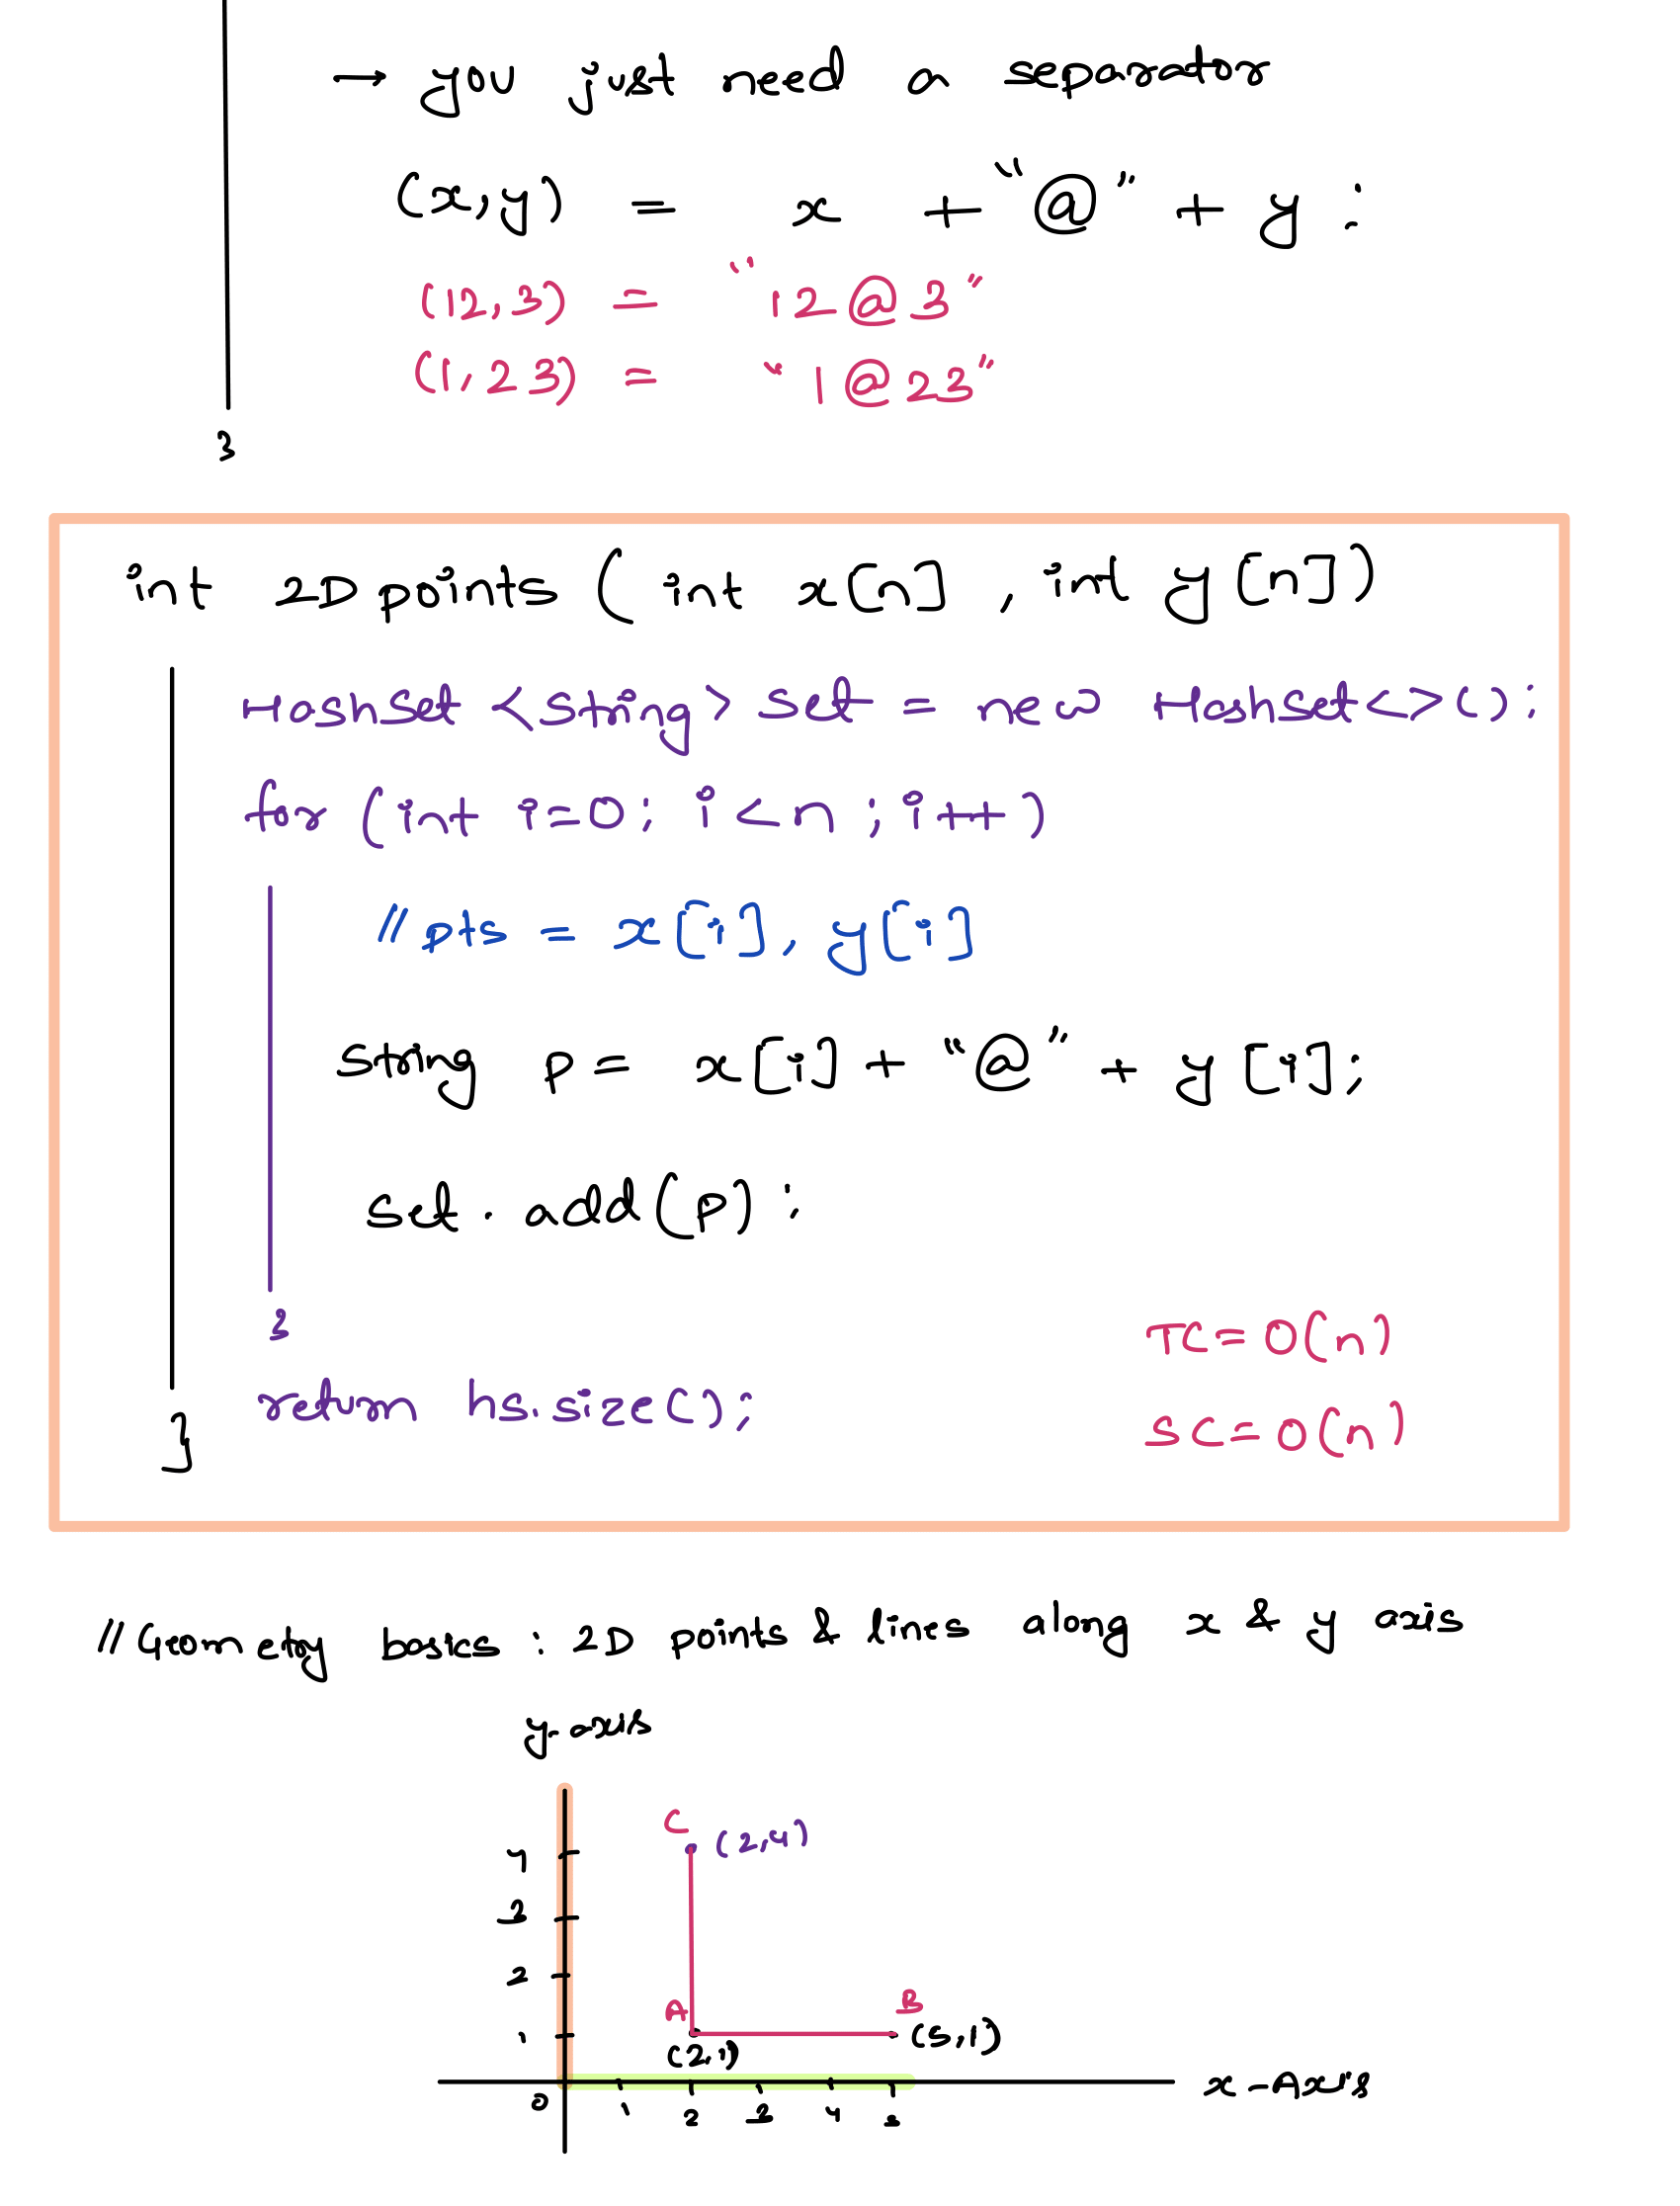 → you just need a separator
(x,y) = x + "@" + y :
(12,3) = "12@3"
(1,23) = "1@23"
}
int 2D points ( int x[n] , int y[n])
Hashset <string> set = new Hashset<>();
for (int i=0; i<n ; i++)
// pts = x[i], y[i]
string p = x[i] + "@" + y[i];
set.add(p);
}
TC = O(n)
return hs.size();
SC = O(n)
}
// Geometry basics : 2D points & lines along x & y axis
y-axis
C (2,4)
4
3
2
A B
1 (5,1)
(2,1)
x-Axis
0 1 2 3 4 5